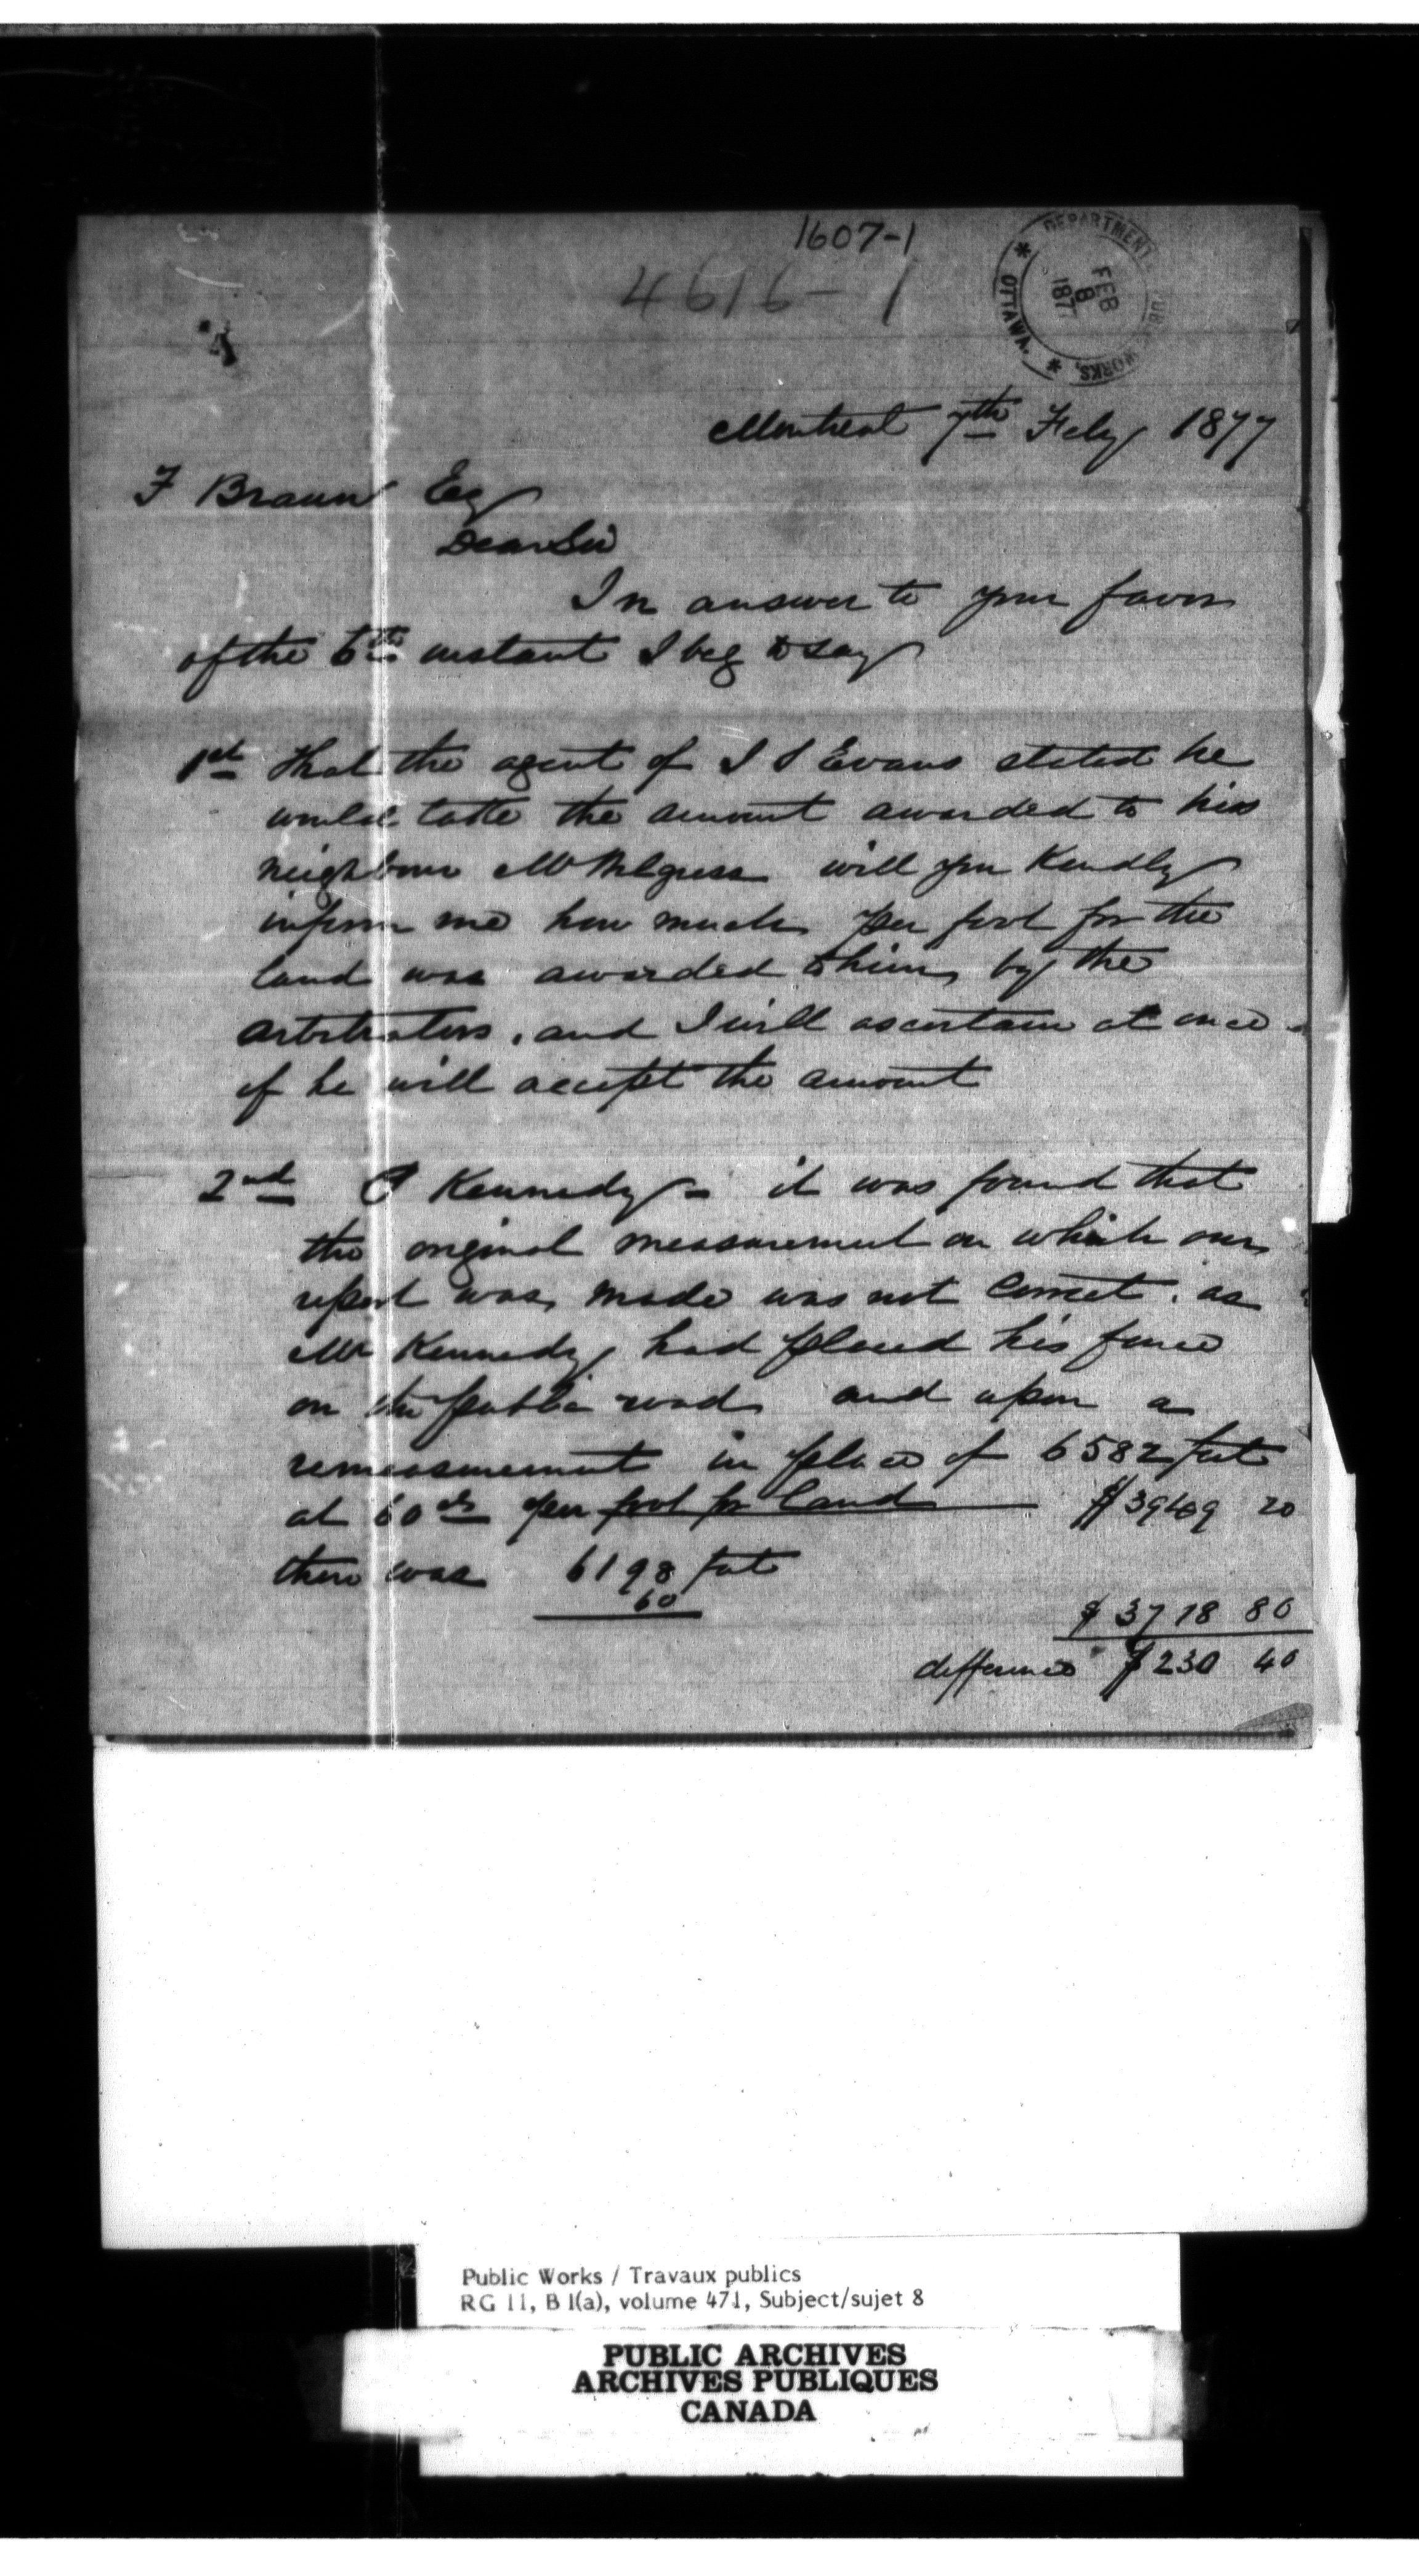 1607-1
4616-1
DEPARTMENT PUBLIC WORKS, OTTAWA.
FEB
8
1877
Montreal 7th Feby 1877
F Braun Esq
Dear Sir
In answer to your favor
of the 6th instant I beg to say
1st That the agent of J S Evans stated he
would take the amount awarded to his
neighbour Mr will you Kindly
inform me how much per foot for the
land was awarded to him by the
arbitrators, and I will ascertain at once
if he will accept the amount
2nd P Kennedy - it was found that
the original measurement on which our
report was made was not correct. as
Mr Kennedy had placed his fence
on the public road and upon a
remeasurement in place of 6582 feet
at 60 cts per foot for land $3949 20
there was 6198 feet
60
$3718 80
difference $230 40
Public Works / Travaux publics
RG 11, B1(a), volume 471, Subject/sujet 8
PUBLIC ARCHIVES
ARCHIVES PUBLIQUES
CANADA